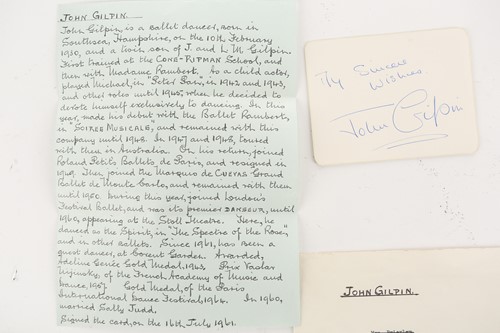 JOHN GILPIN.
John Gilpin, is a ballet dancer, born in
Southsea, Hampshire, on the 10th February
1930, and a twin son of J. and L. M. Gilpin.
First trained at the CONE-RIPMAN School, and
then with Madame Rambert. As a child actor,
played Michael, in "Peter Pan, in 1942 and 1943,
and other roles until 1945, when he decided to
devote himself exclusively to dancing. In this
year, made his debut with the Ballet Rambert,
in "SOIREE MUSICALE", and remained with this
company until 1948. In 1947 and 1948, toured
with them in Australia. On his return, joined
Roland Petits Ballets de Paris, and resigned in
1949. Then joined the Marquis de CUEVAS Grand
Ballet de Monte Carlo, and remained with them
until 1950. During this year, joined London's
Festival Ballet, and was its premier DANSEUR, until
1960, appearing at the Stoll Theatre. Here, he
danced as the Spirit, in "The Spectre of the Rose",
and in other ballets. Since 1961, has been a
guest dancer, at Covent Garden. Awarded,
Adeline Genée Gold Medal, 1943. Prix Vaslav
Nijinsky of the French Academy of Music and
Dance, 1957. Gold Medal, of the Paris
International Dance Festival, 1964. In 1960,
married Sally Judd.
Signed the card, on the 16th July, 1961.
My Sincere
Wishes
John Gilpin
JOHN GILPIN.